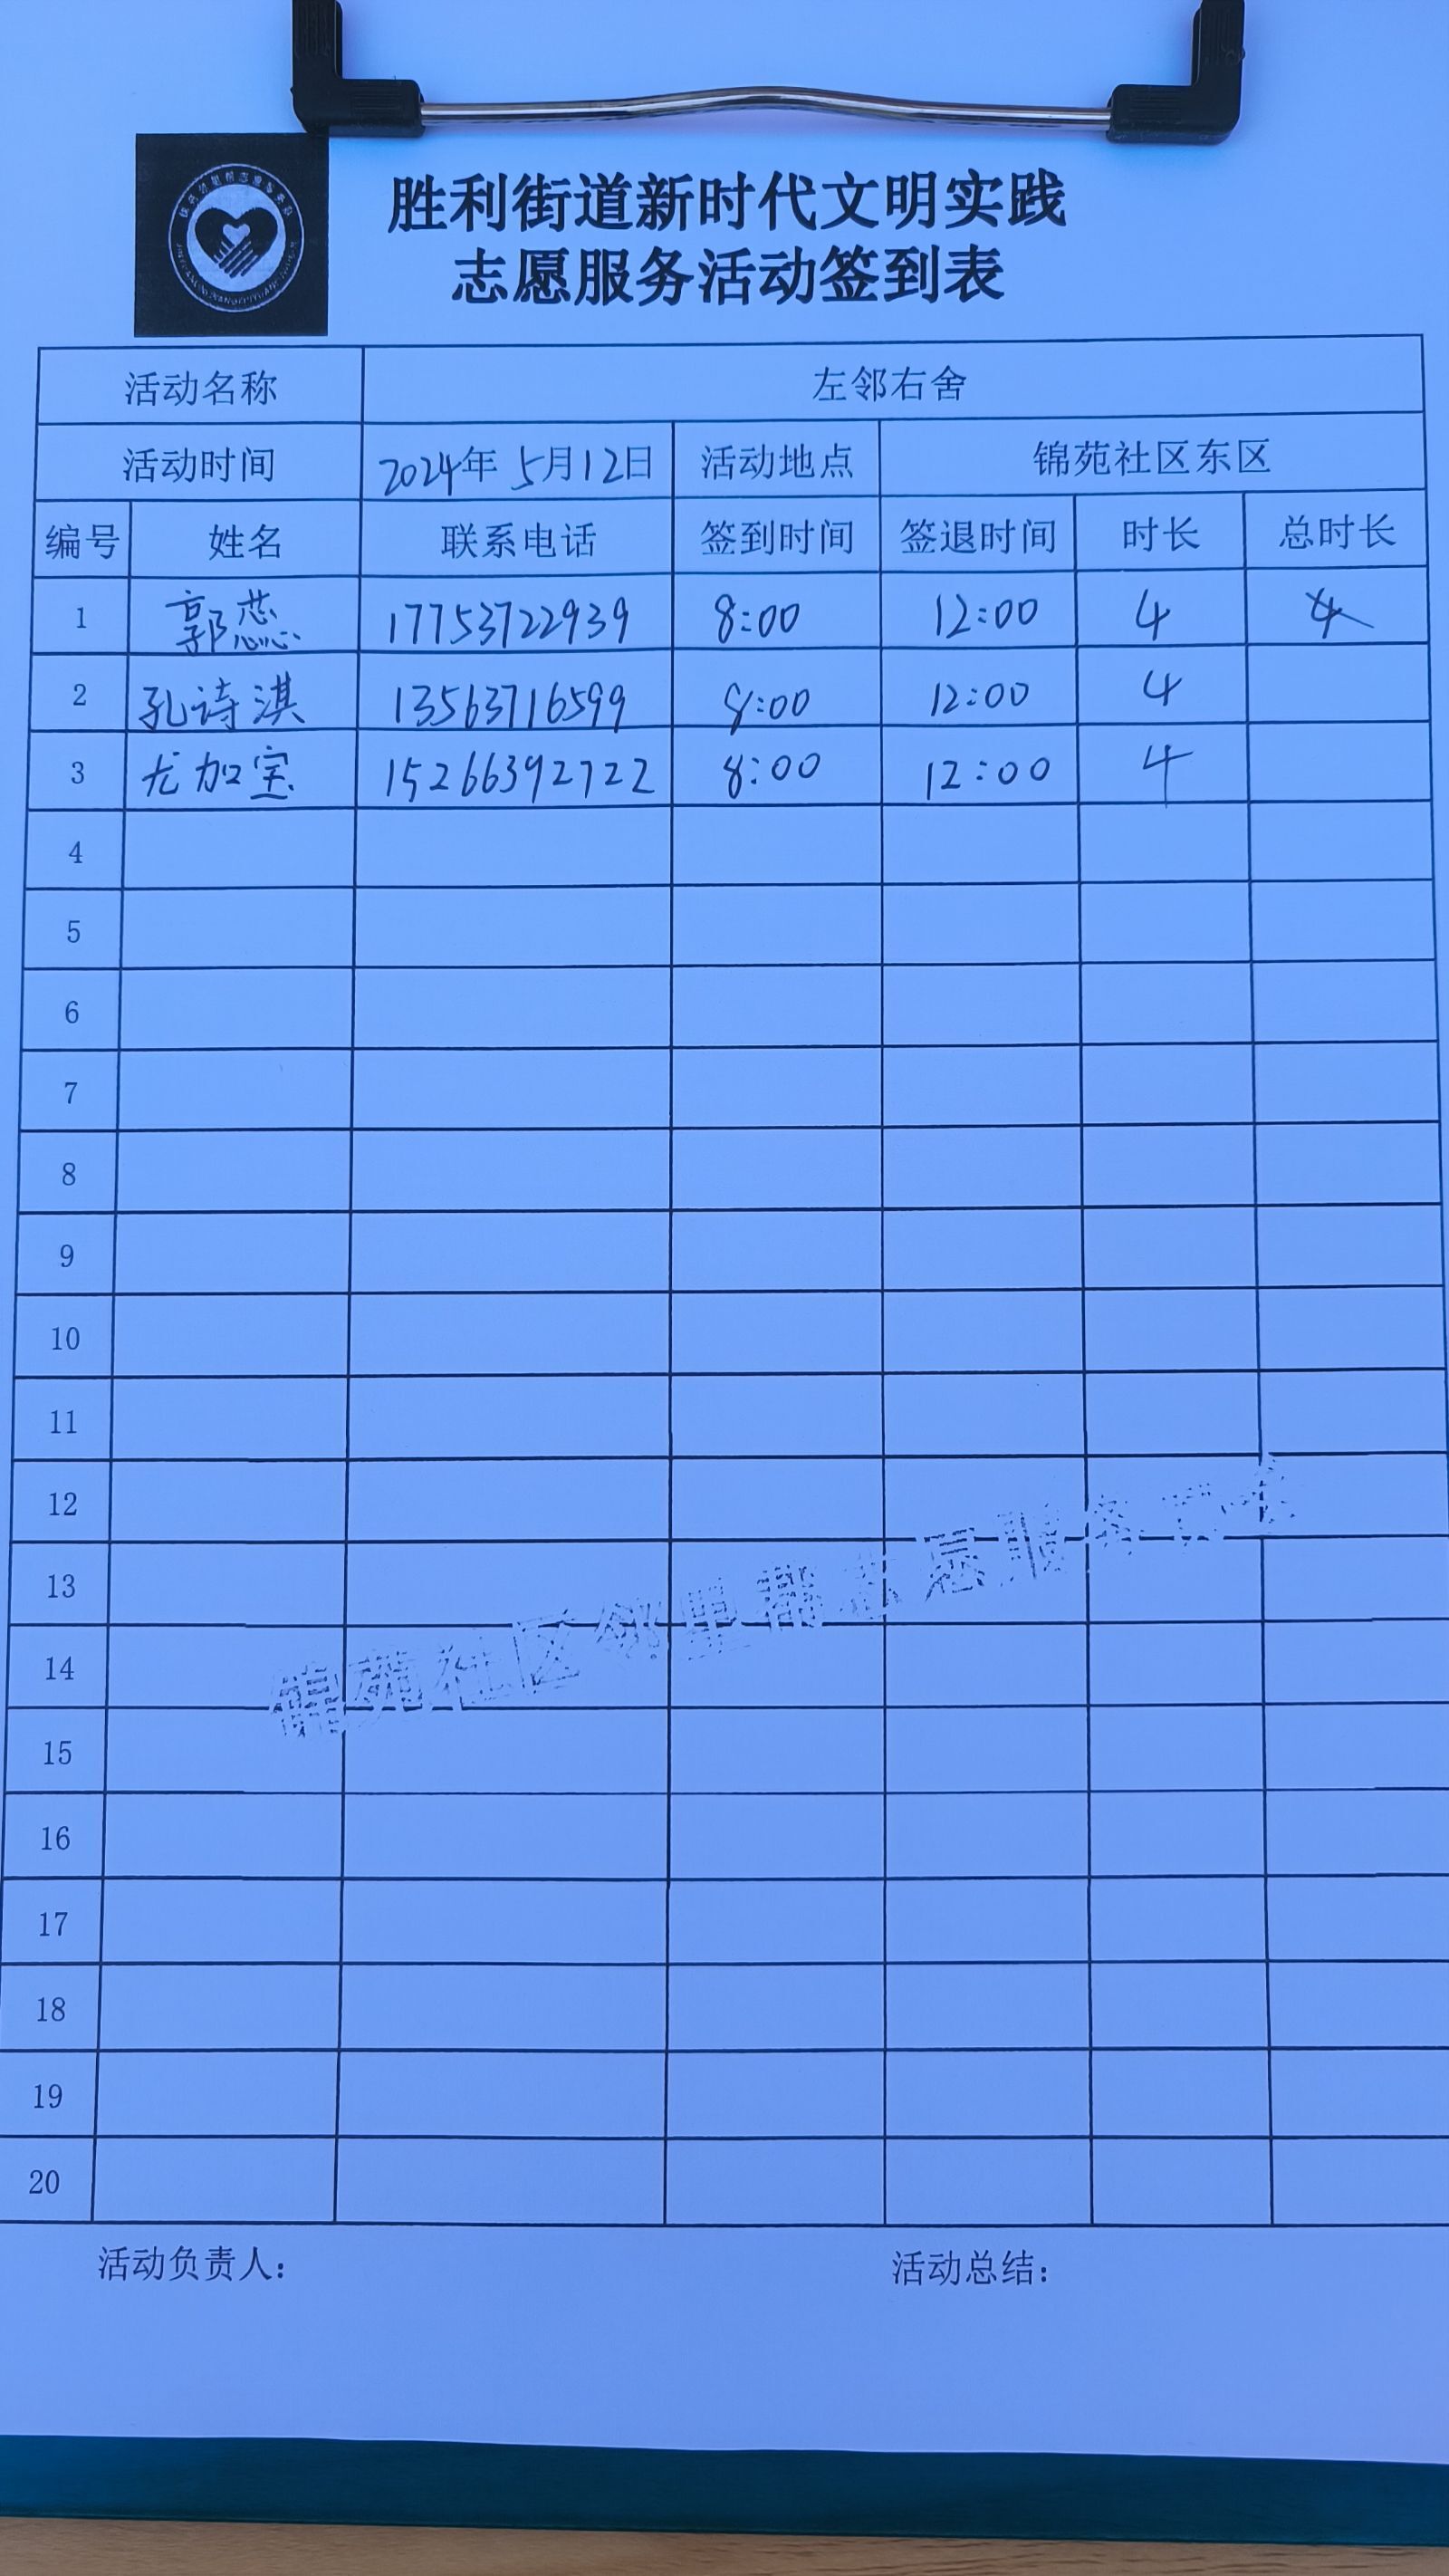 胜利街道新时代文明实践
志愿服务活动签到表
活动名称 左邻右舍
活动时间 2024年 5月12日 活动地点 锦苑社区东区
编号 姓名 联系电话 签到时间 签退时间 时长 总时长
1 郭蕊 17753722939 8:00 12:00 4 4
2 孔诗淇 13563716599 8:00 12:00 4
3 尤加宝 15266392722 8:00 12:00 4
4
5
6
7
8
9
10
11
12
13
14
15
16
17
18
19
20
锦苑社区邻里帮志愿服务
活动负责人: 活动总结: